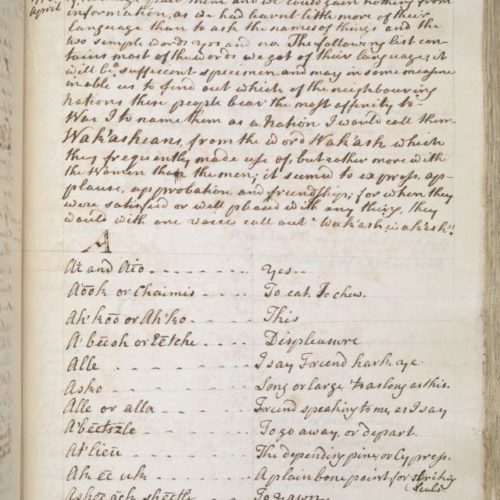 April
and we could gain nothing from
information, as we had learnt little more of their
language than to ask the names of things and the
two simple words yes and no. The following list con-
tains most of the words we got of their language; it
will be a sufficent specimen and may in some measure
inable us to find out which of the neighbouring
Nations these people bear the most affinity to.
Was I to name them as a Nation I would call them
Wak'ashians, from the word Wak'ash which
they frequently made use of, but rather more with
the Women than the men; it seemed to express, ap-
plause, approbation and friendship; for when they
were satisfied or well pleased with any thing, they
would with one voice call out Wak'ash, wak'ash!
A
Ai and Aio - - - - - - - Yes
Aook or Chaimis - - - - To eat, To chew.
Ak'koo or Ah'ko - - - - This
A'beesh or Eetche - - - - Displeasure
Alle - - - - - - I say Friend hark ye
Asko - - - - - - Long or large tis as long as this.
Alle or alla - - - - - Friend speaking to me, as I say
A'beetszle - - - - - To go away, or depart.
At'lieu - - - - - The depending pine, or Cypress.
Ah ee uk - - - - - A plain bone point for striking
Seals
To yawn